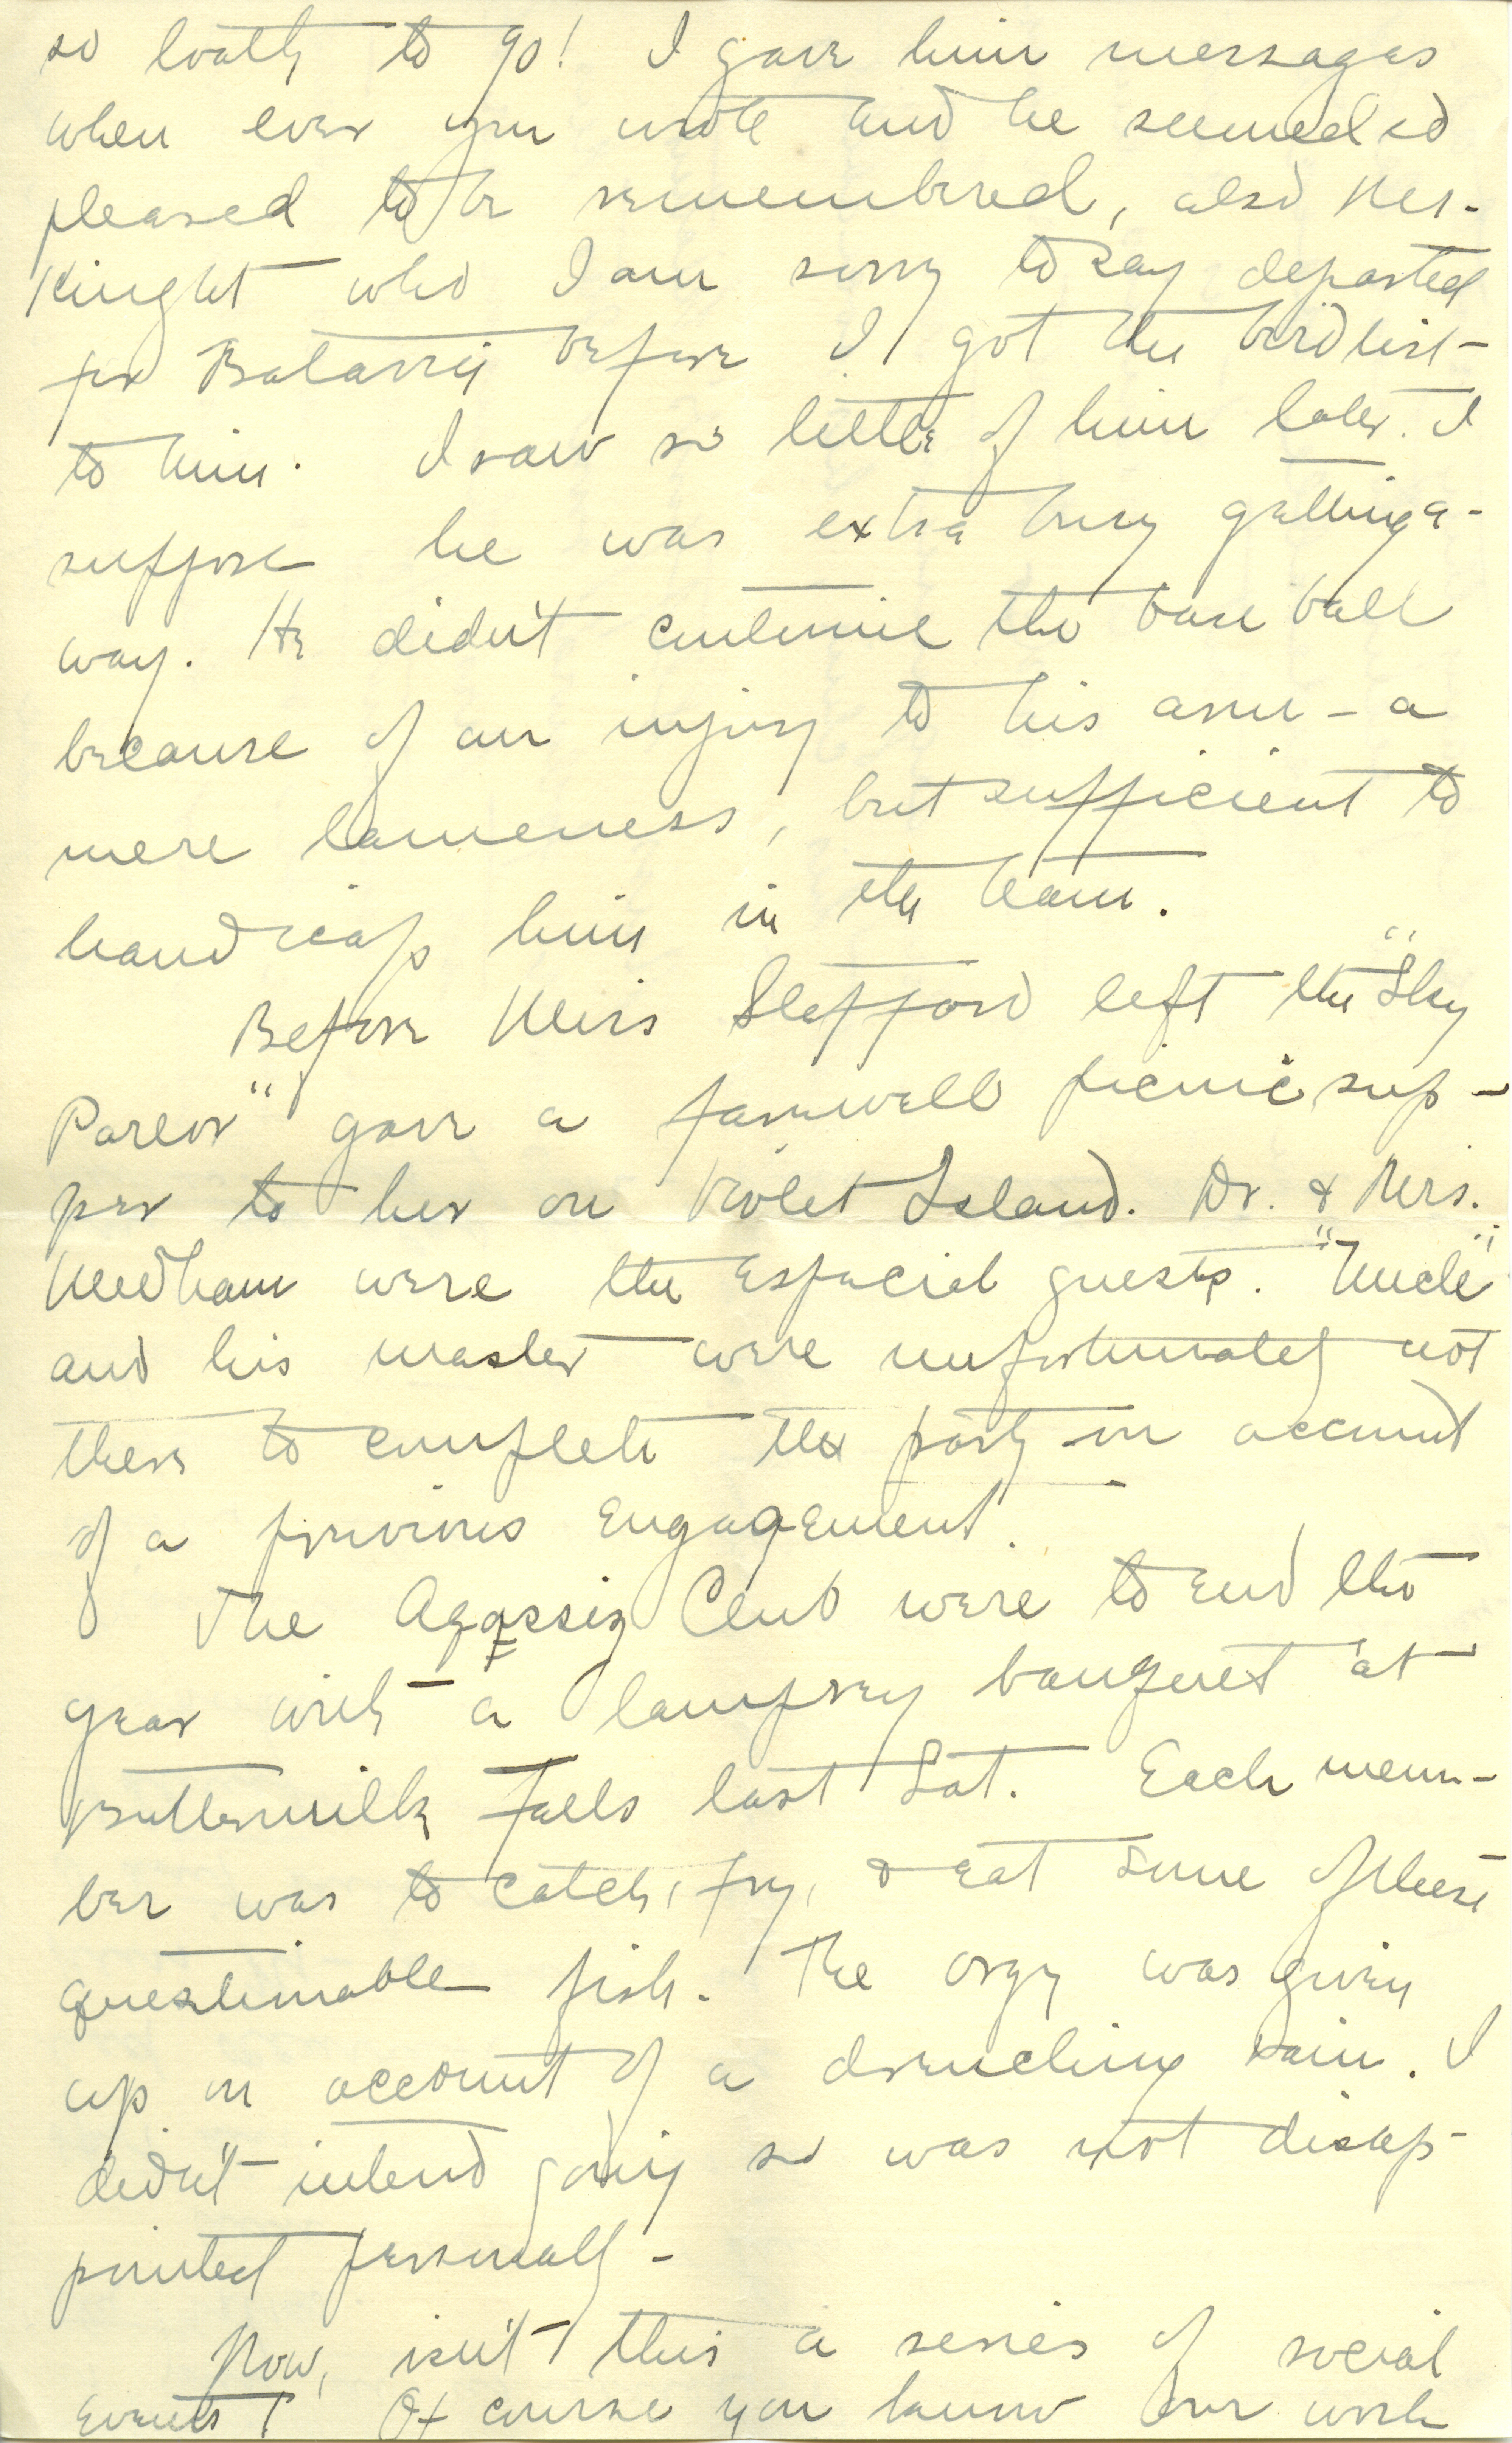 so loath to go! I gave him messages
when ever you wrote and he seemed so
pleased to be remembered, also Mr.
Knight who I am sorry to say departed
for before I got the bird list
to him. I saw so little of him later. I
suppose he was extra busy getting a-
way. He didn't continue the base ball
because of an injury to his arm - a
mere lameness, but sufficient to
handicap him in the team.
Before Miss left the "Sky
Parlor" gave a farewell picnic sup-
per to her on Violet Island. Dr. & Mrs.
Needham were the especial guests. "Uncle"
and his master were unfortunately not
there to complete the party on account
of a previous engagement.
The Agassiz Club were to end the
year with a lamprey banquet at
Buttermilk Falls last Sat. Each mem-
ber was to catch, fry, & eat some of these
questionable fish. The orgy was given
up on account of a drenching rain. I
didn't intend going so was not disap-
pointed personally -
Now, isn't this a series of social
events! Of course you know our work